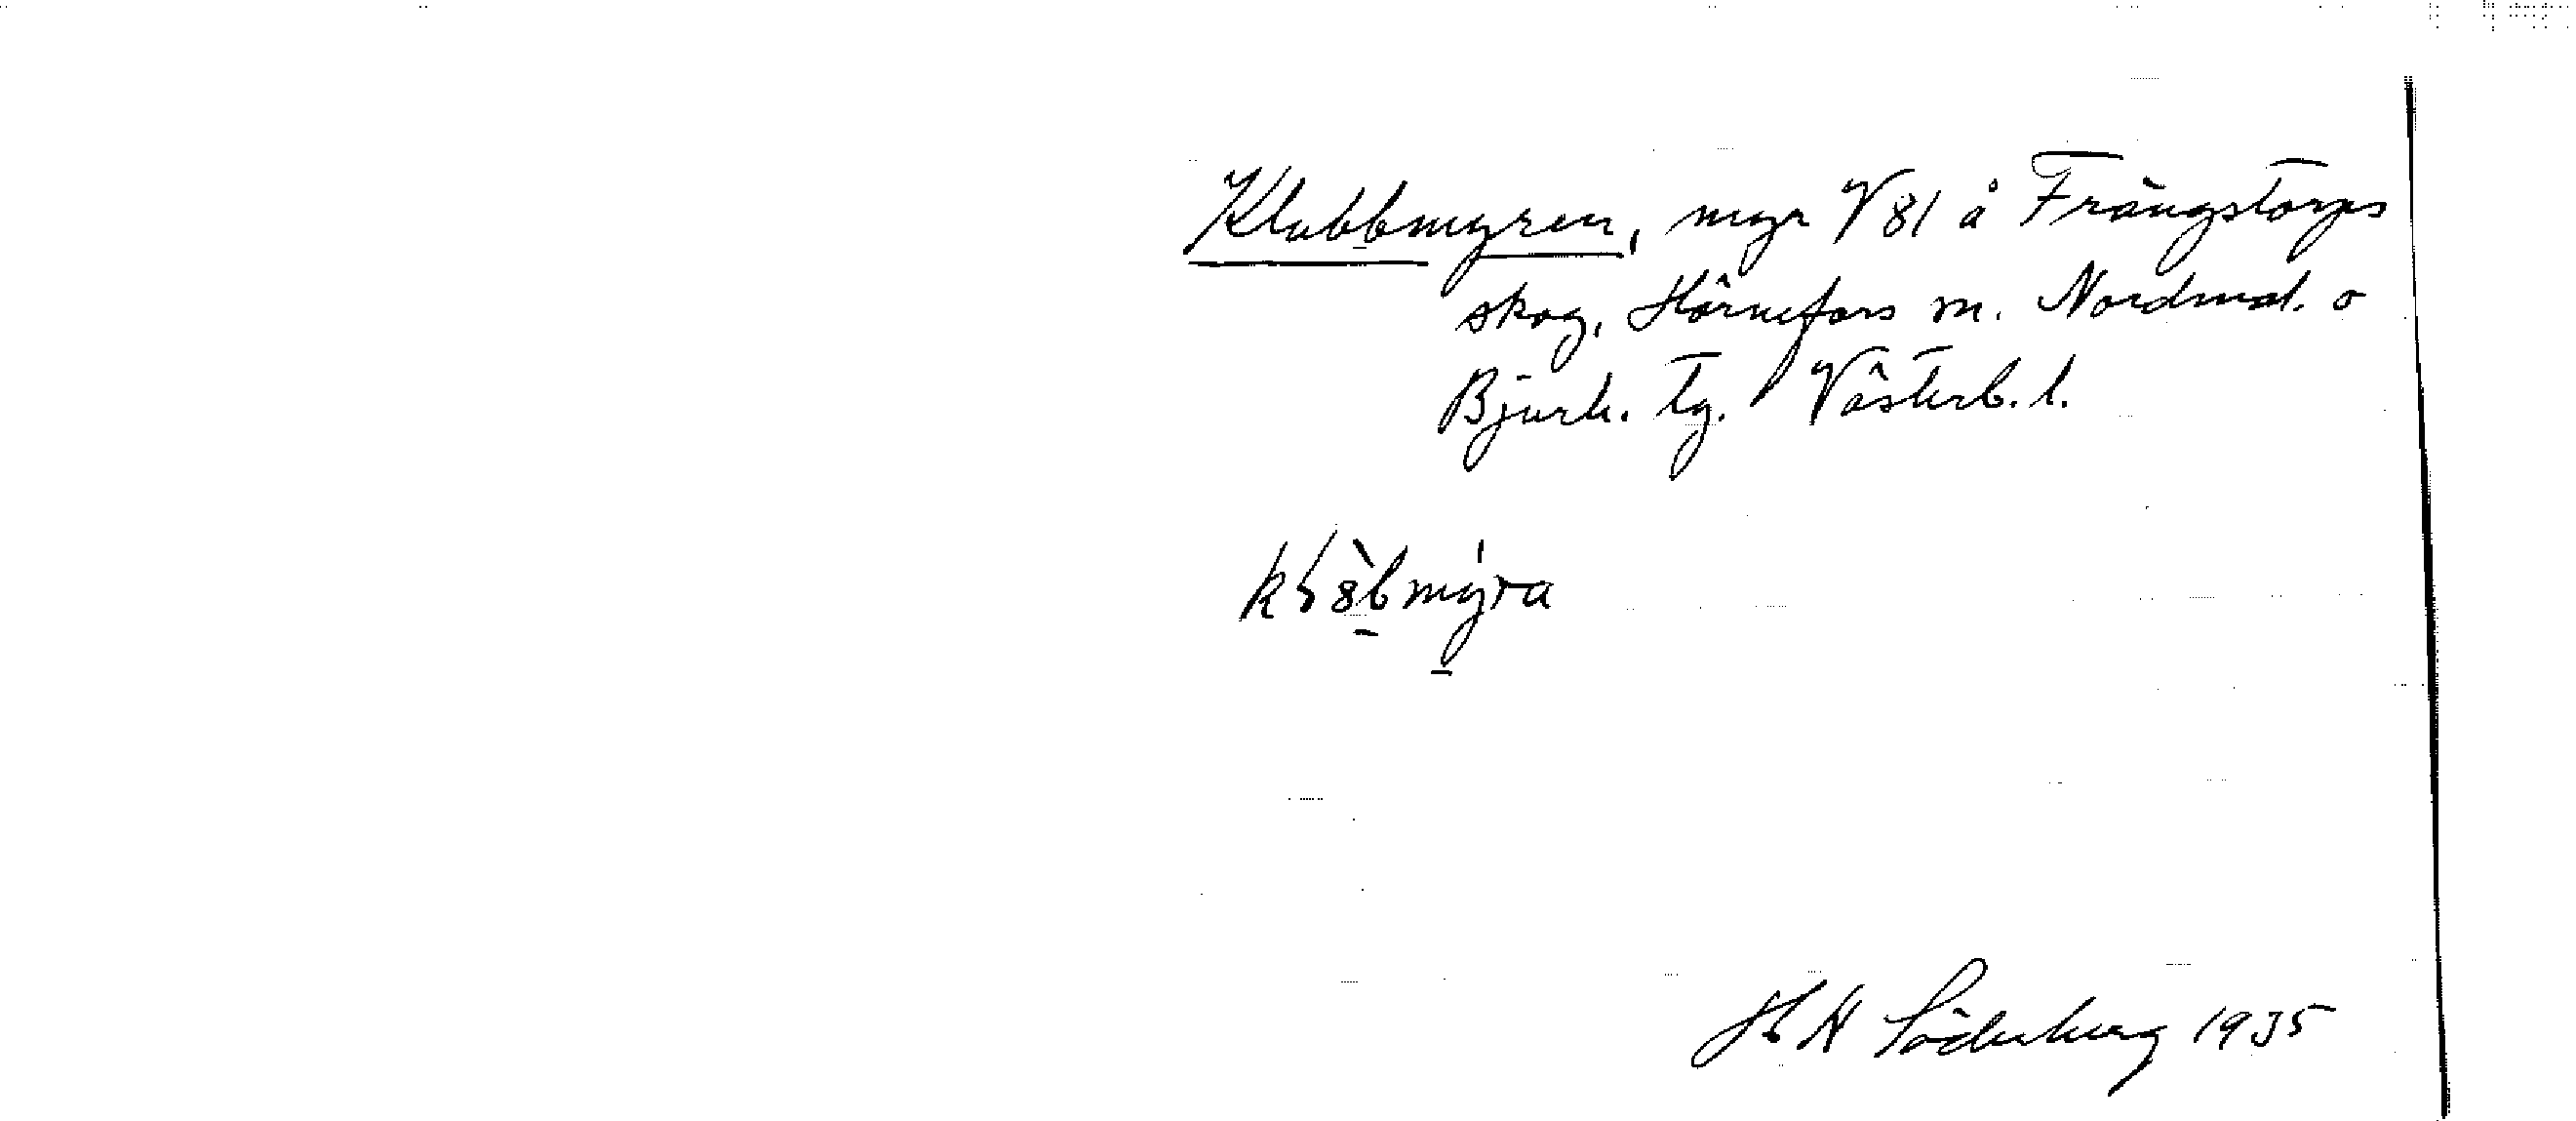 Klubbmyren, myr V 81 å Frängstorps
skog, Hörnefors m. Nordmal. o
Bjurh. tg. Västerb. l.
kl8̀bmýra
H Söderberg 1935